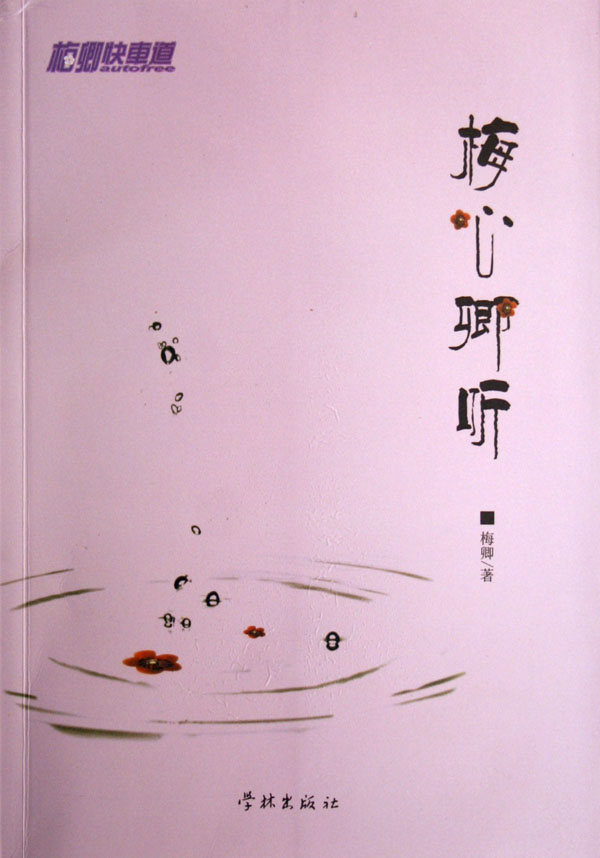 梅卿快車道
autofree
梅心卿听
■梅卿/著
学林出版社